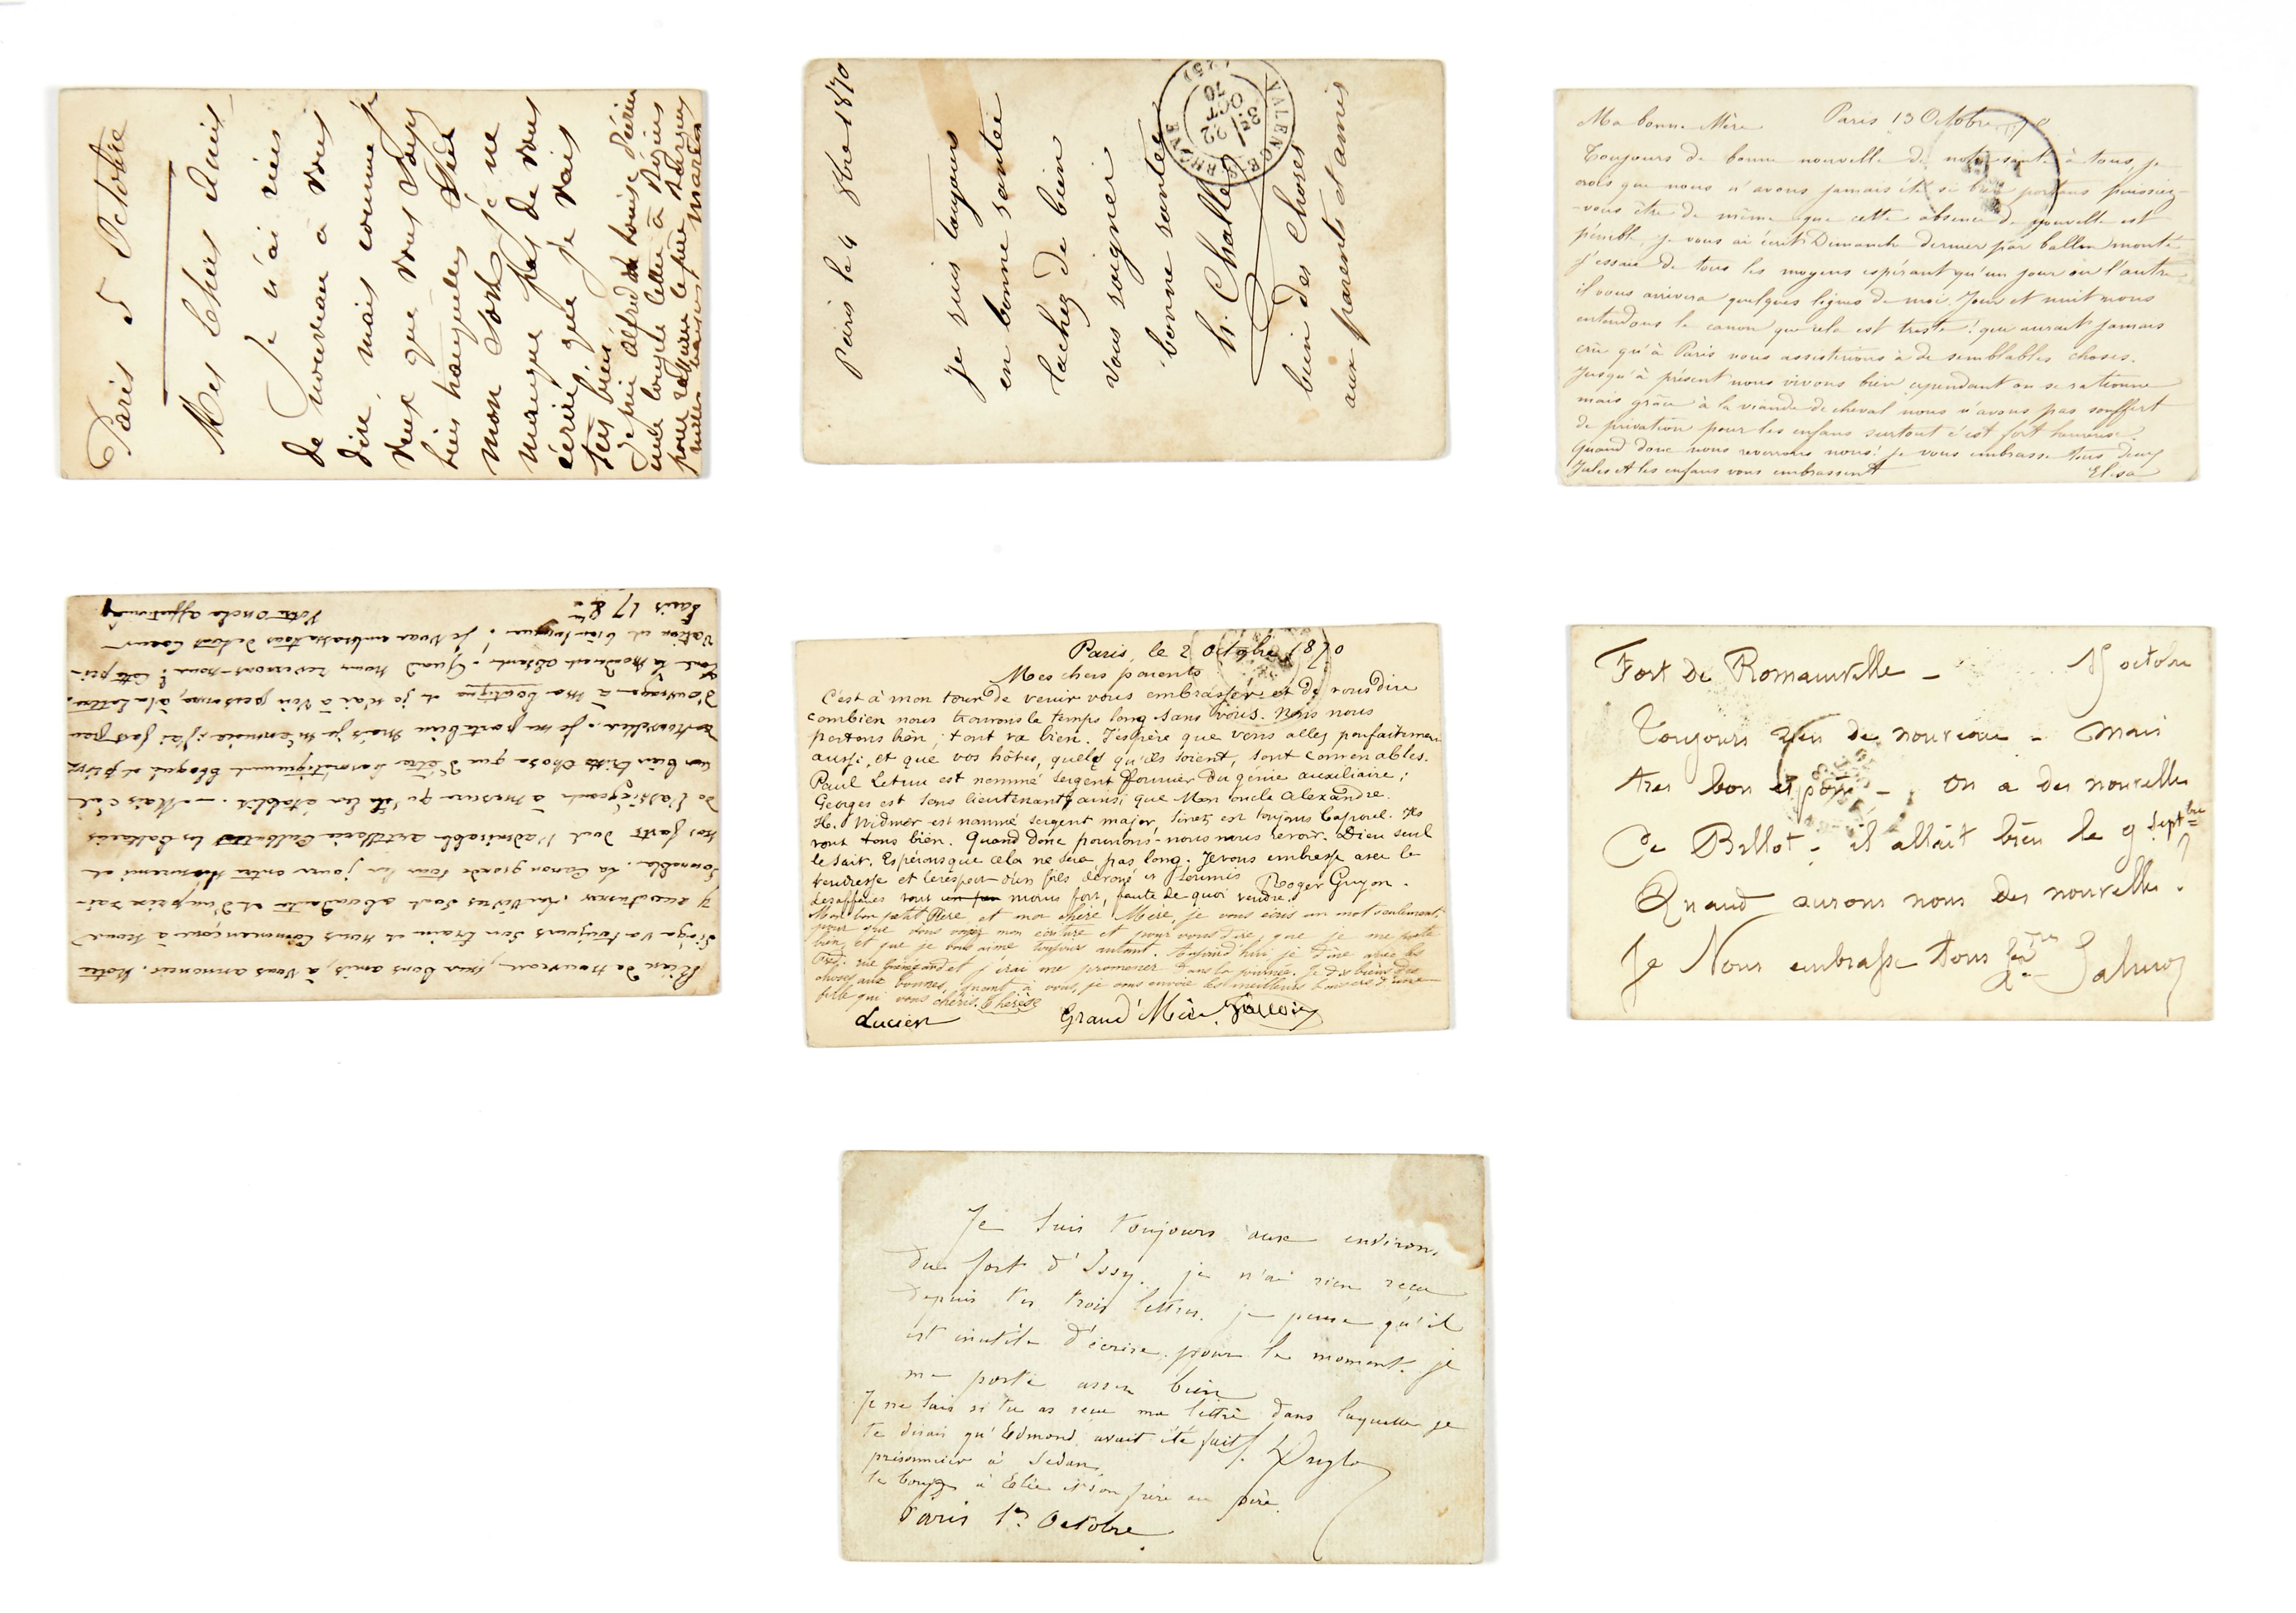 Paris 5 Octobre
Mes Chers Amis
Je n'ai rien
de nouveau à vous
dire, mais comme je
veux que vous soyez
bien tranquilles
mon sort je ne
manque pas de vous
écrire que je vais
très bien
Paris le 4 8bre 1870
je suis toujours
en bonne santée
tachez de bien
vous soigner
bonne santée
h. Challe
bien des choses
aux parents et amis
VALENCE-S-RHONE
3E/
22
OCT
70
(25)
Ma bonne Mère Paris 13 Octobre
Toujours de bonne nouvelle de notre santé à tous, je
crois que nous n'avons jamais été si bien portans puissiez-
-vous être de même que cette absence de nouvelle est
pénible, je vous ai écrit Dimanche dernier par ballon monté
j'essaie de tous les moyens espérant qu'un jour ou l'autre
il vous arrivera quelques lignes de moi. Jour et nuit nous
entendons le canon que cela est triste! qui aurait jamais
cru qu'à Paris nous assisterions à de semblables choses.
Jusqu'à présent nous vivons bien cependant on se rationne
mais grâce à la viande de cheval nous n'avons pas souffert
de privation pour les enfans surtout c'est fort heureux.
Quand donc nous reverrons nous! je vous embrasse tous deux
Jules et les enfans vous embrassent Elisa
Rien de nouveau, mes bons amis, à vous annoncer. Notre
siège va toujours son train et nous commençons à nous
y accoutumer. Les vivres sont abondants et d'un prix rai-
sonnable. Le canon gronde tous les jours entre l'ennemi et
nos forts dont l'admirable artillerie culbute les batteries
de l'assiégeant à mesure qu'il les établit. - Mais c'est
une bien triste chose que d'être hermétiquement bloqué et privé
de nouvelles. Je me porte bien mais je m'ennuie; j'ai fort peu
d'ouvrage à ma boutique et je n'ai à voir personne, à la lettre,
tout le monde est absent. Quand nous reverrons-nous? Cette pri-
vation est bien longue! Je vous embrasse tous de tout coeur
Paris 17 8bre Votre oncle affectionné
Paris, le 2 octobre 1870
Mes chers parents
C'est à mon tour de venir vous embrasser et de vous dire
combien nous trouvons le temps long sans vous. Nous nous
portons bien; tout va bien. J'espère que vous allez parfaitement
aussi, et que vos hôtes, quels qu'ils soient, sont convenables.
Paul Letuu est nommé sergent fourrier du génie auxiliaire;
Georges est sous lieutenant, ainsi que Mon oncle Alexandre.
H. Widmer est nommé sergent major, Sinet est toujours Caporal. Ils
vont tous bien. Quand donc pourrons-nous nous revoir. Dieu seul
le sait. Espérons que cela ne sera pas long. Je vous embrasse avec la
tendresse et le respect d'un fils dévoué et soumis Roger Guyon.
Les affaires vont un peu moins fort, faute de quoi vendre.
Mon bon petit Père et ma chère Mère, je vous écris un mot seulement,
pour que vous voyez mon écriture et pour vous dire, que je me porte
bien et que je vous aime toujours autant. Aujourd'hui je dîne avec les
rue Guénégaud et j'irai me promener dans la journée. Je dis bien des
choses aux bonnes, quant à vous, je vous envoie les meilleurs baisers d'une
fille qui vous chéris. Thérèse
Lucien Grand'Mère
Fort de Romainville - 15 octobre
Toujours rien de nouveau - Mais
très bon espoir - on a des nouvelles
de Billot - il allait bien le 9 septbre
Quand aurons nous des nouvelles?
Je Vous embrasse tous
Je suis toujours aux environs
du fort d'Issy. je n'ai rien reçu
depuis tes trois lettres. je pense qu'il
est inutile d'écrire pour le moment. je
me porte assez bien
Je ne sais si tu as reçu ma lettre dans laquelle je
te disais qu'Edmond avait été fait
prisonnier à Sedan.
à Elie et son frère au père.
Paris 1er Octobre